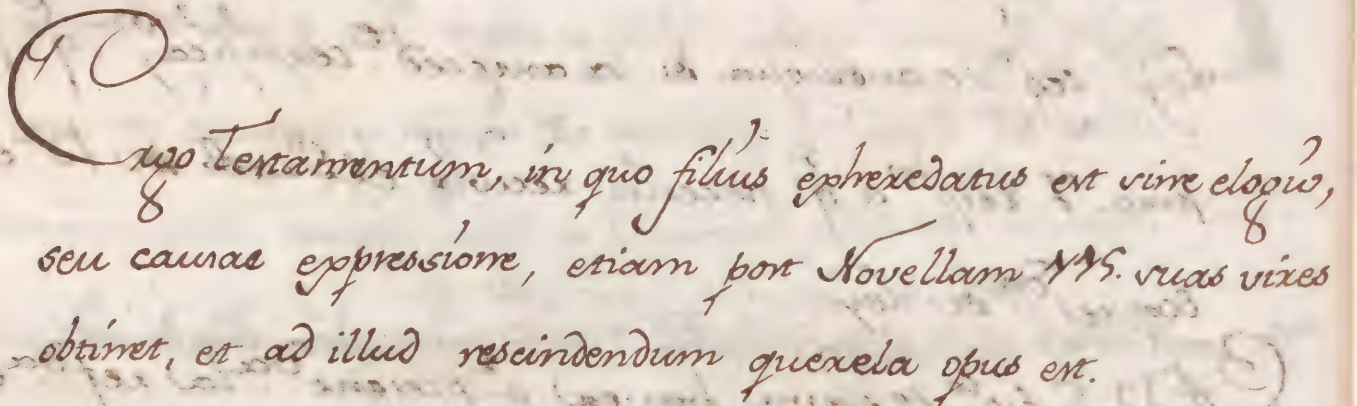 Ergo Testamentum, in quo filius exheredatus est sine elogio,
seu causae expressione, etiam post Novellam 115. suas vires
obtinet, et ad illud rescindendum querela opus est.